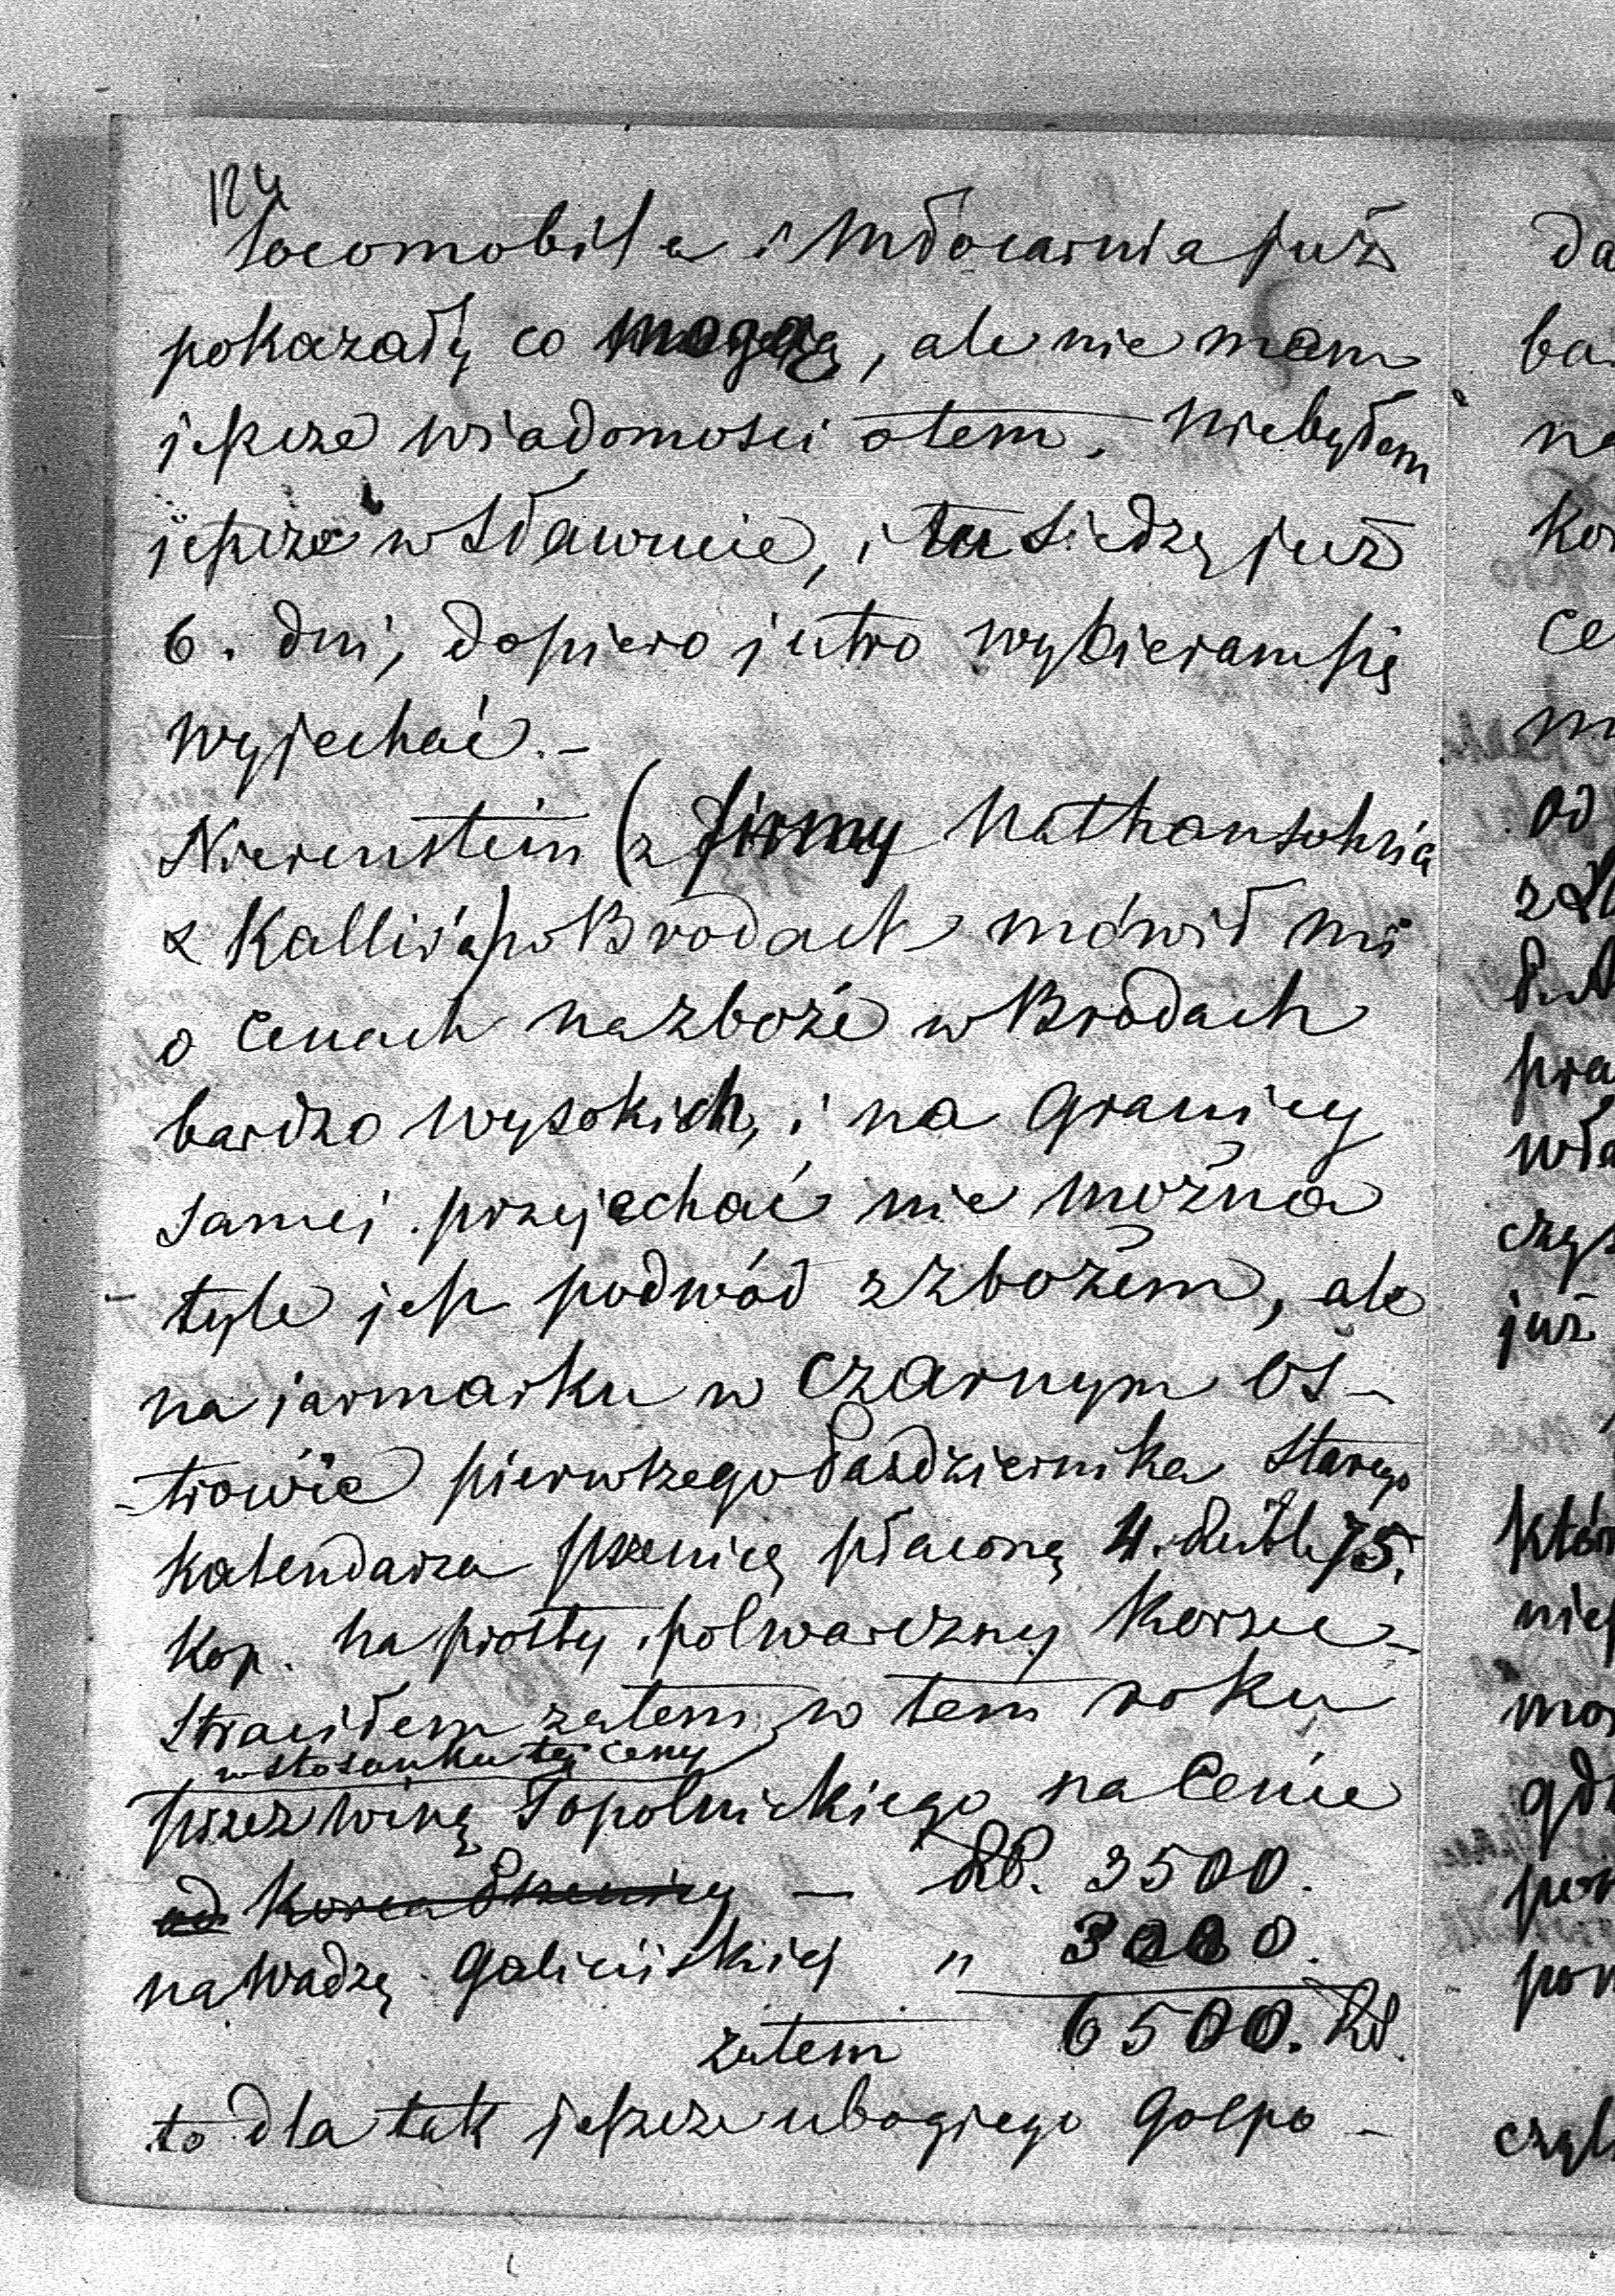 124
Locomobila i Młocarnia już
pokazały co mogą, ale nie mam
jeszcze wiadomości o tem. Niebyłem
jeszcze w Sławucie, i tu siedzę już
6. dni, dopiero jutro wybieram się
wyjechać. -
Nierenstein (z firmy Nathansohna
& Kallir'a) w Brodach mówił mi
o Cenach na zboże w Brodach
bardzo wysokich, i na Granicy
samej przyjechać nie można
tyle jest podwód z zbożem, ale
na jarmarku w Czarnym Os-
-trowie pierwszego Października Starego
Kalendarza pszenicę płacono 4. Rubli 75.
Kop. na prosty folwarczny Korzec -
Straciłem zatem w tem roku
w stosunku tej ceny
przez winę Topolnickiego na Cenie
od Korca Pszenicy - RS. 3500.
na Wadzę Galicijskiej " 3000.
zatem 6500. RS.
to dla tak jeszcze ubogiego Gospo-